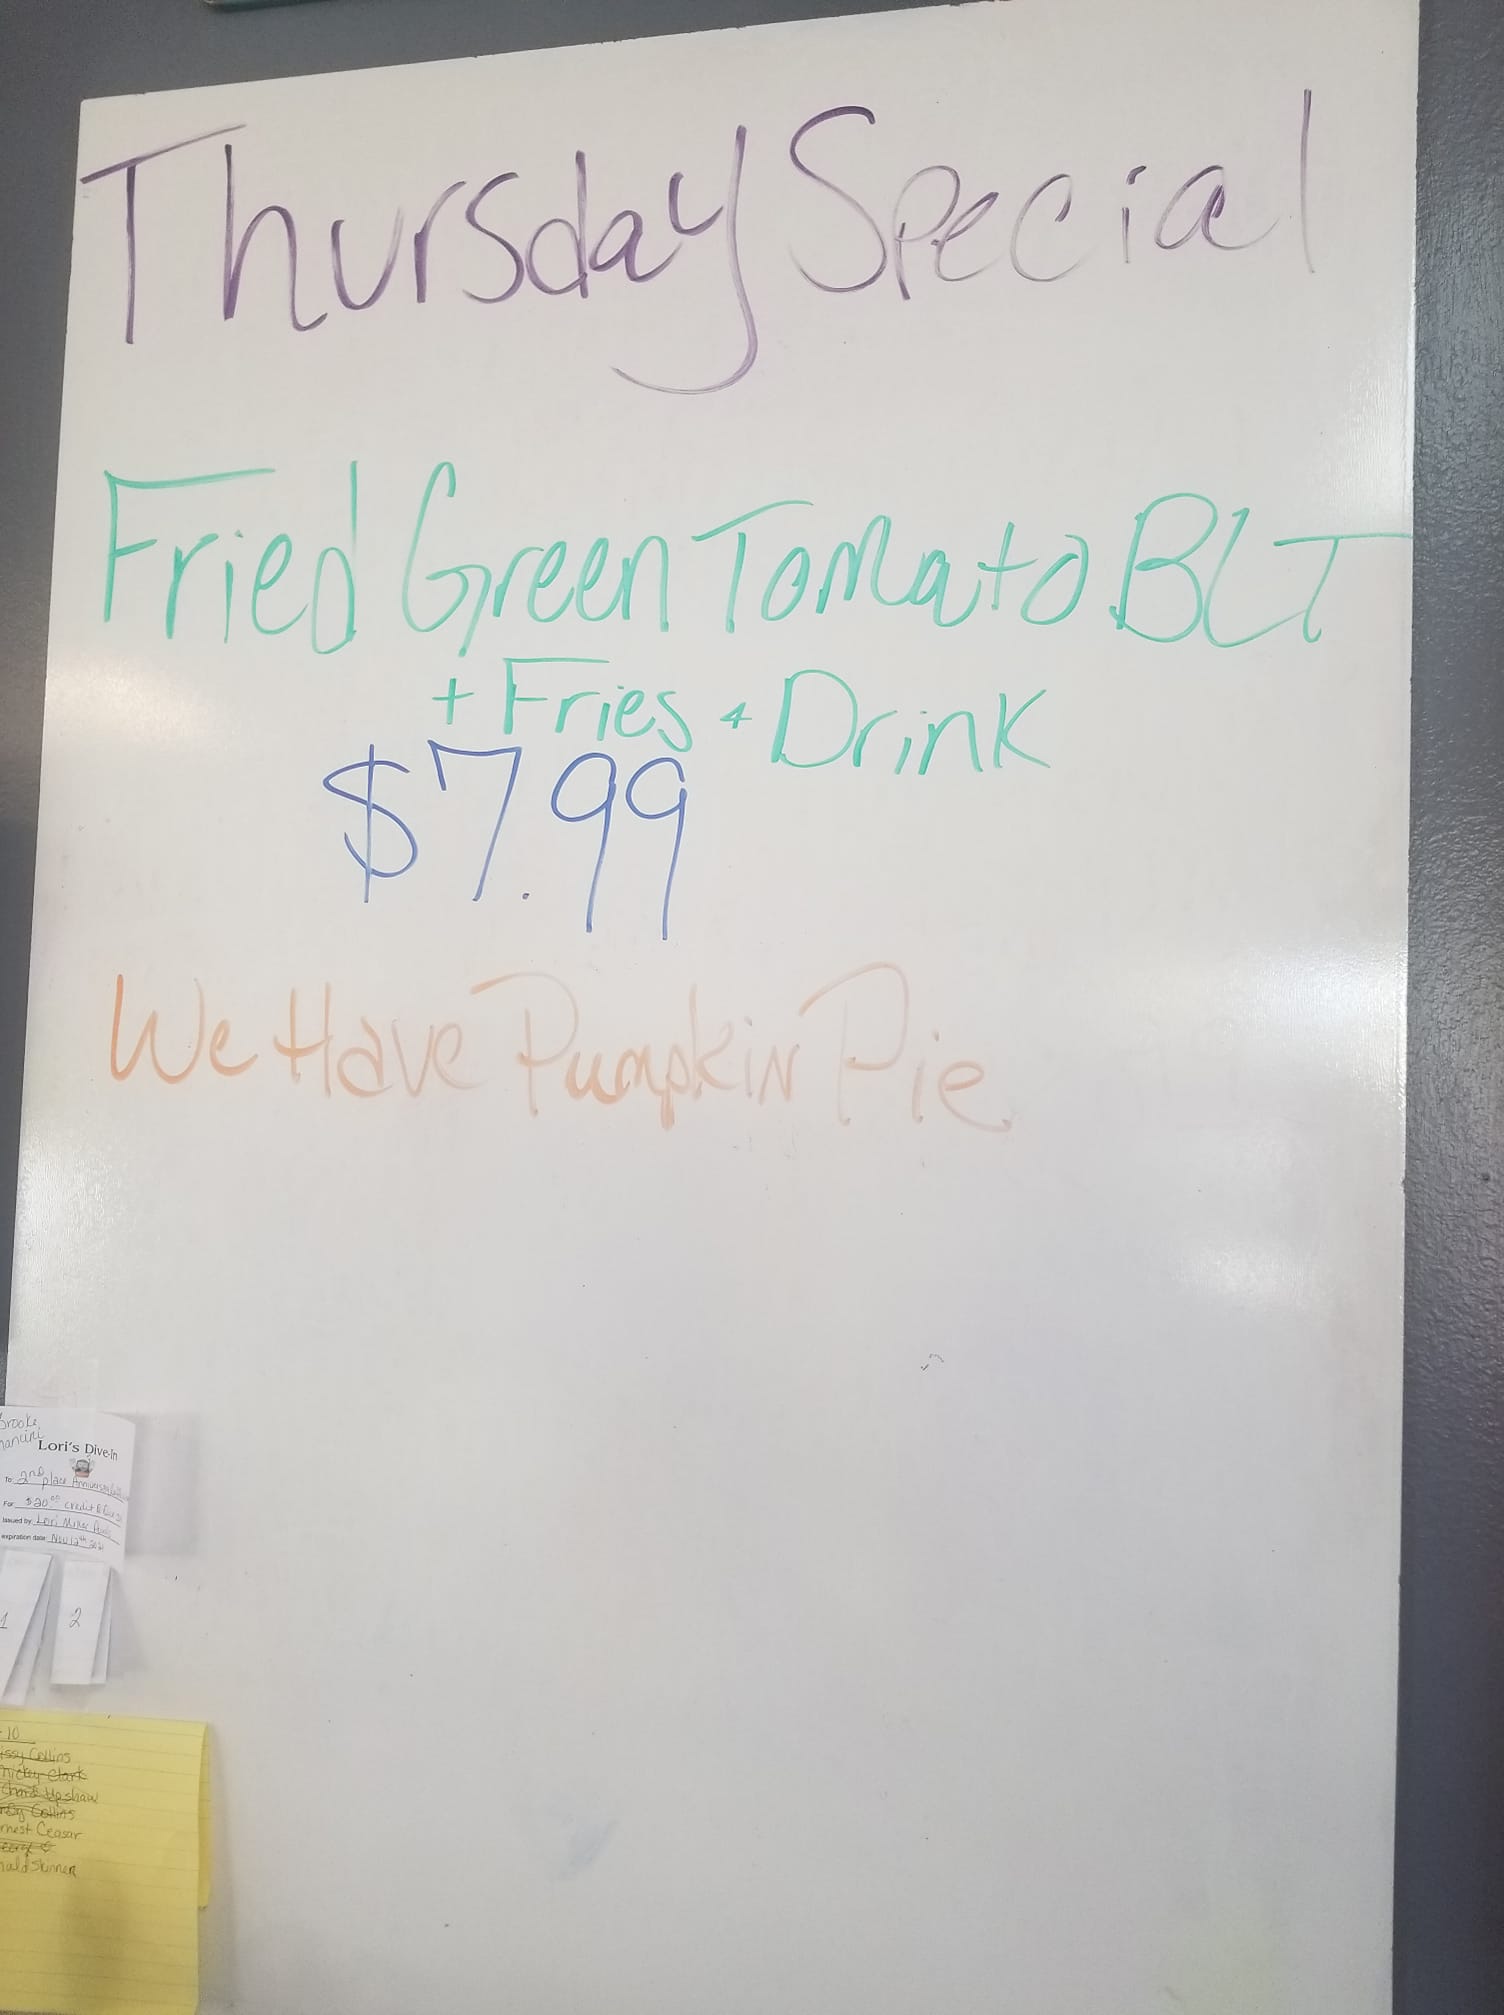 Thursday Special
Fried Green Tomato BLT
+ Fries + Drink
$7.99
We Have Pumpkin Pie
Lori's Dive-In
To: 2nd place Anniversary
For: $20.00 credit
Issued by: Lori Miller
expiration date: Nov 12th
1
2
10
Collins
Mickey Clark
Upshaw
Collins
Ceasar
Skinner